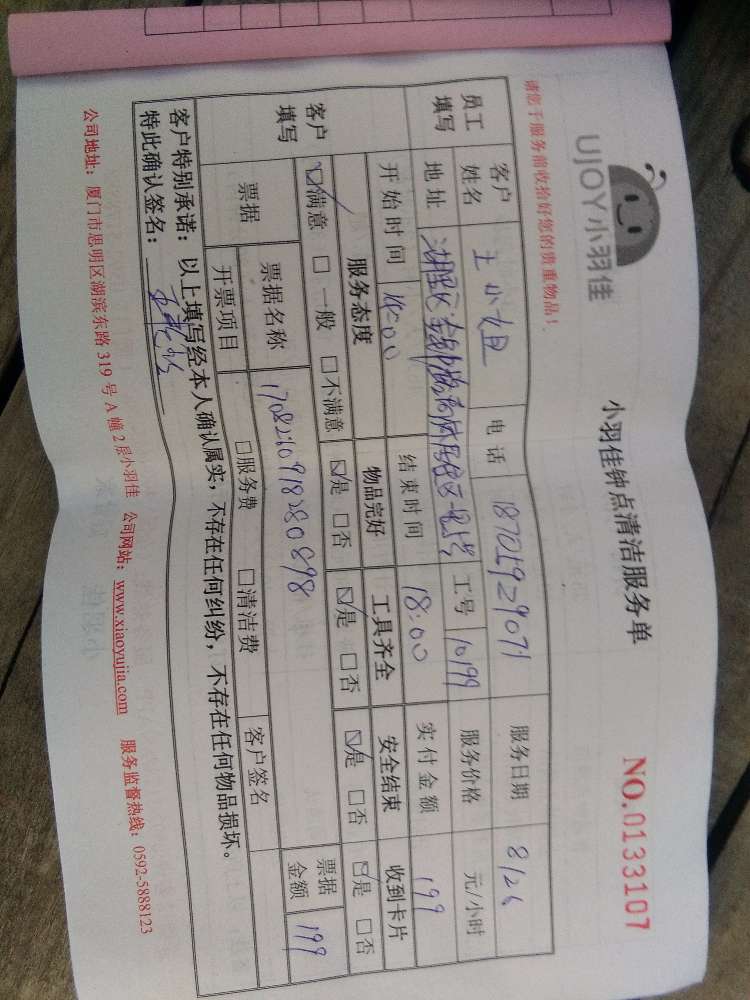 UJOY小羽佳
小羽佳钟点清洁服务单
NO.0133107
请您于服务前收拾好您的贵重物品！
员工填写 客户姓名 王小姐 电话 18705929071 服务日期 8/26
地址 工号 10199 服务价格 元/小时
开始时间 结束时间 18:00 实付金额 199
客户填写 服务态度 物品完好 工具齐全 安全结束 收到卡片
☑满意 □一般 □不满意 ☑是 □否 ☑是 □否 ☑是 □否 ☑是 □否
票据 票据名称 1708260918280898 票据金额 199
开票项目 □服务费 □清洁费 客户签名
客户特别承诺：以上填写经本人确认属实，不存在任何纠纷，不存在任何物品损坏。
特此确认签名：
公司地址：厦门市思明区湖滨东路 319 号 A 幢 2 层小羽佳 公司网站：www.xiaoyujia.com 服务监督热线：0592-5888123